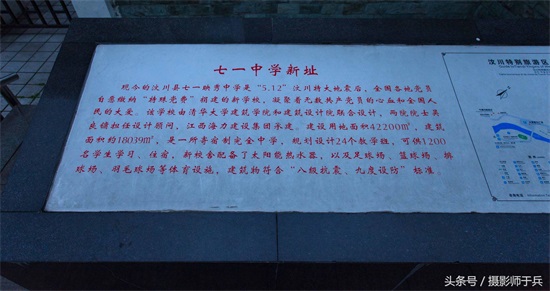 七一中学新址
现今的汶川县七一映秀中学是“5.12”汶川特大地震后，全国各地党员
自愿缴纳“特殊党费”捐建的新学校，凝聚着无数共产党员的心血和全国人
民的大爱。该学校由清华大学建筑学院和建筑设计院联合设计，两院院士吴
良镛担任设计顾问，江西海力建设集团承建。建设用地面积42200m²，建筑
面积约18039m²，是一所寄宿制完全中学，规划设计24个教学班，可供1200
名学生学习、住宿，新校舍配备了太阳能热水器，以及足球场、篮球场、排
球场、羽毛球场等体育设施，建筑物符合“八级抗震、九度设防”标准。
汶川特别旅游区
头条号／摄影师于兵